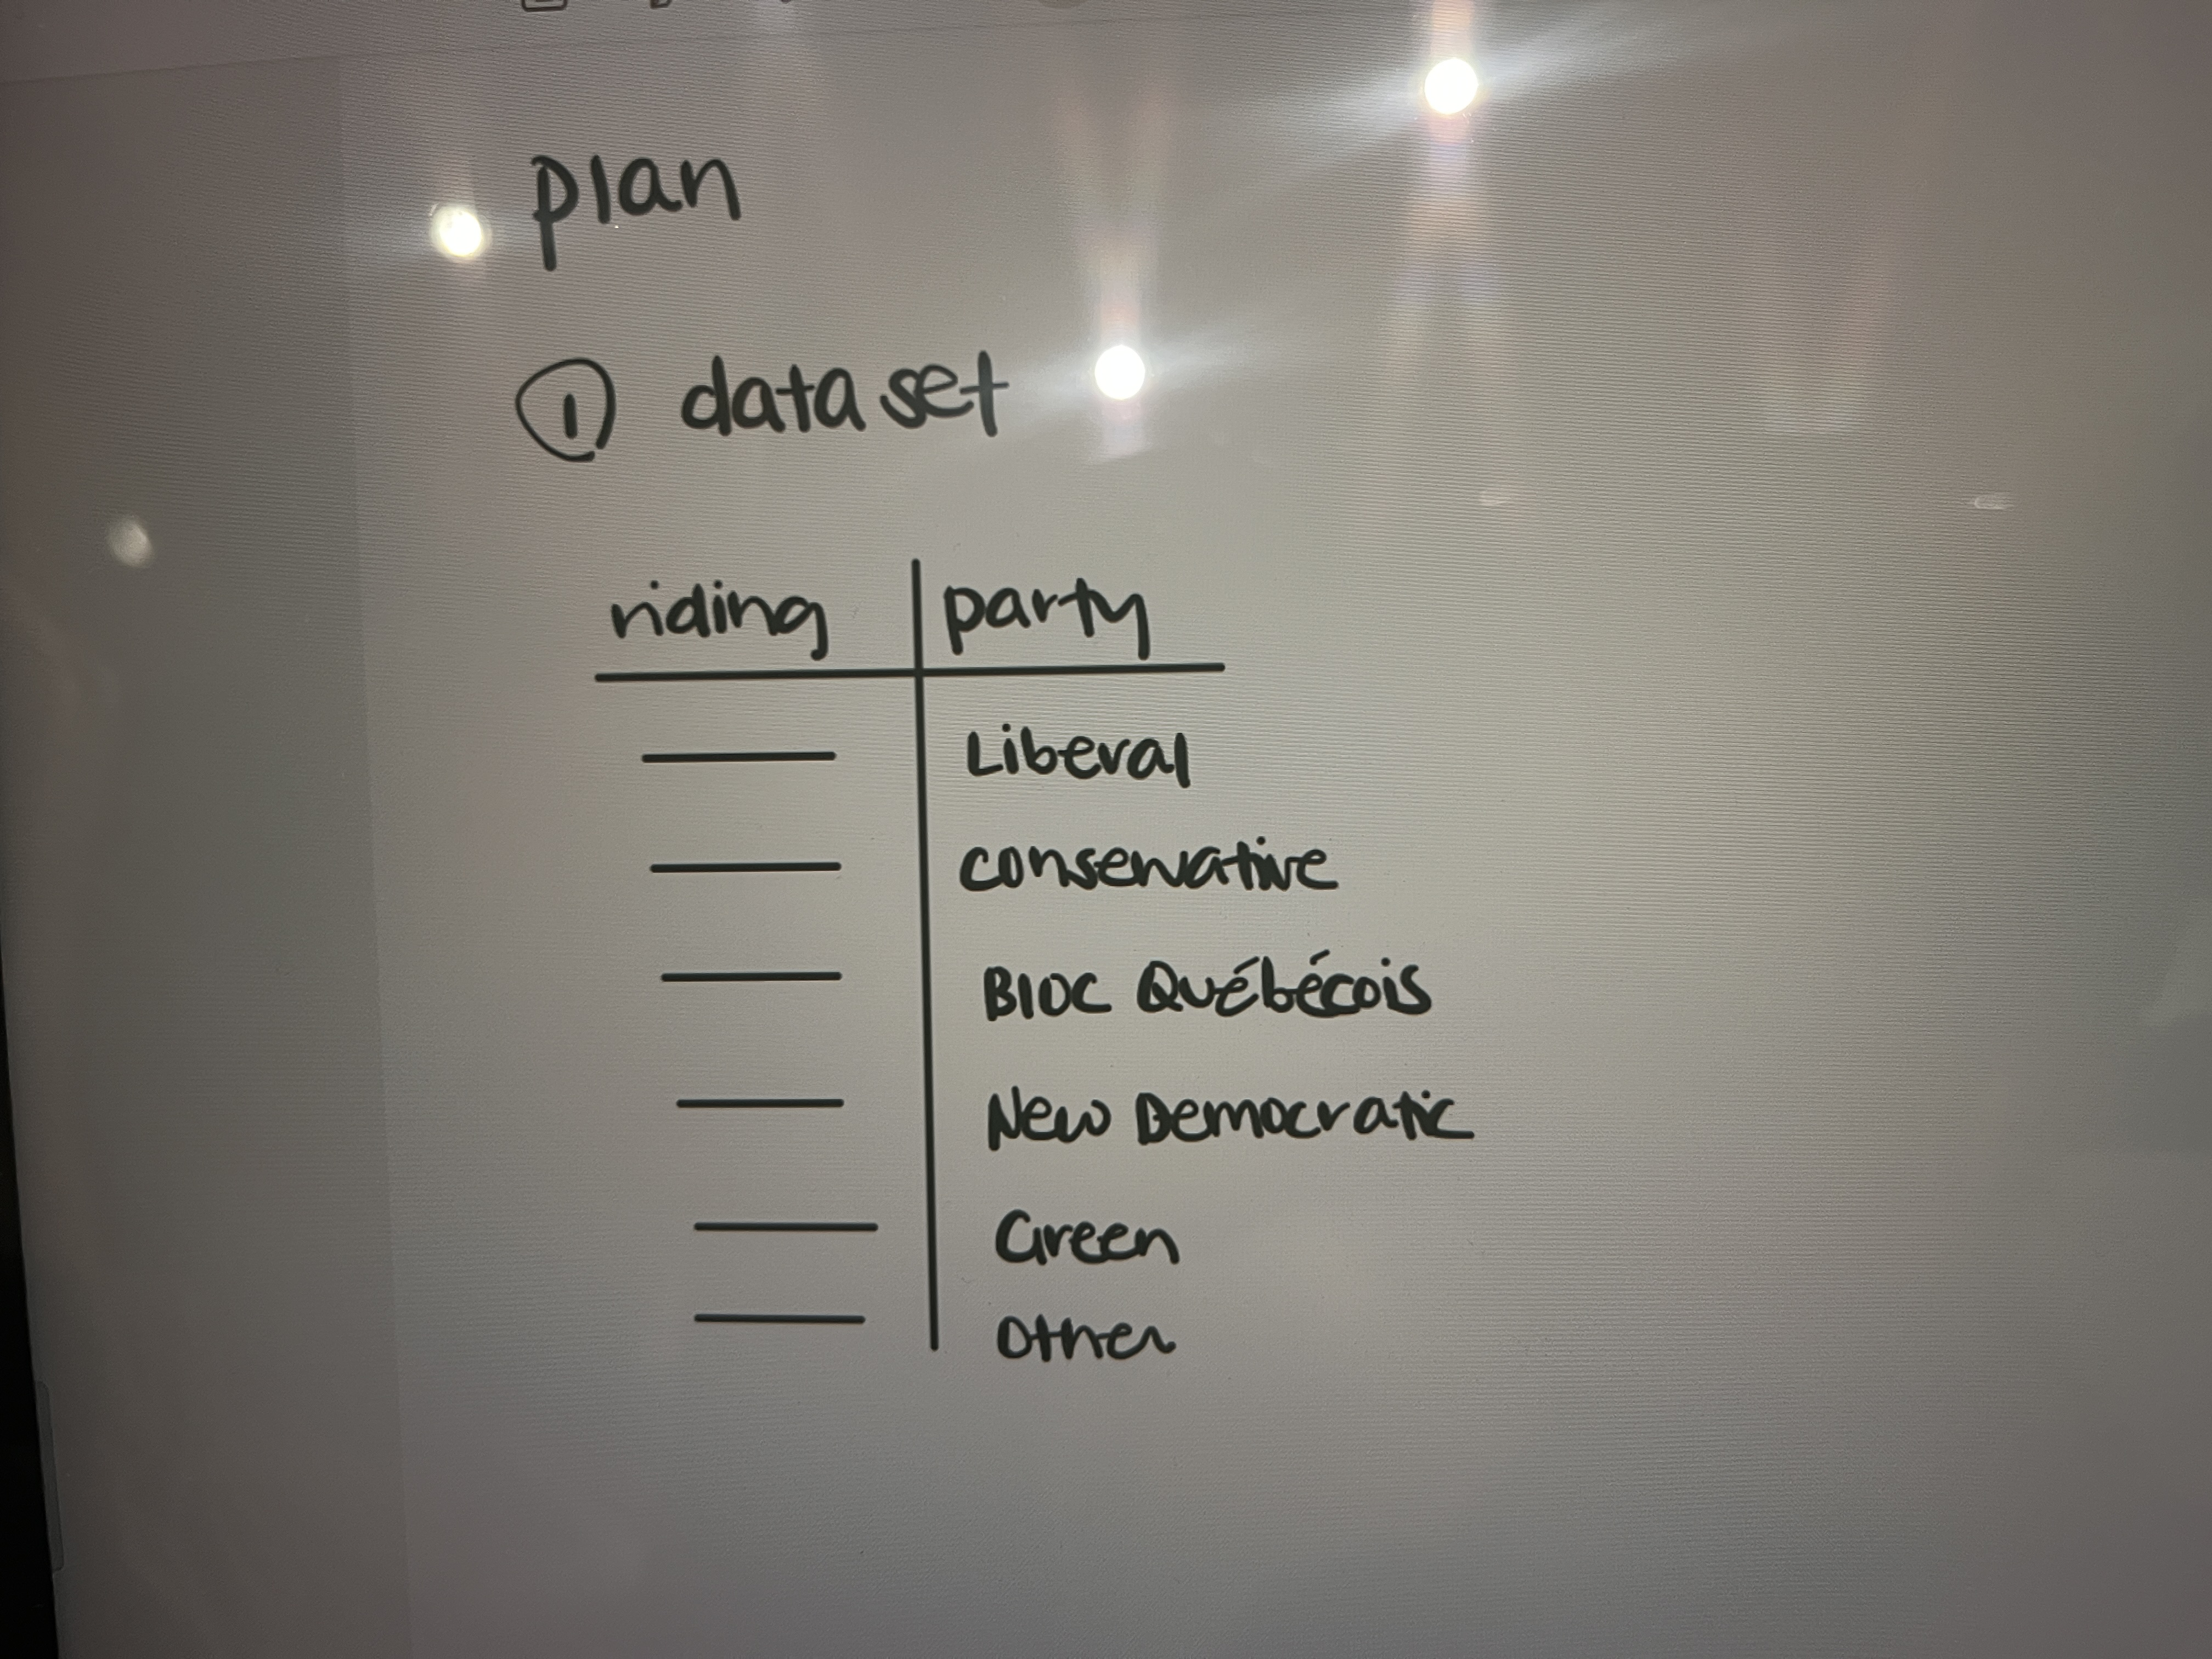 plan
① dataset
riding party
Liberal
Conservative
Bloc Québécois
New Democratic
Green
Other